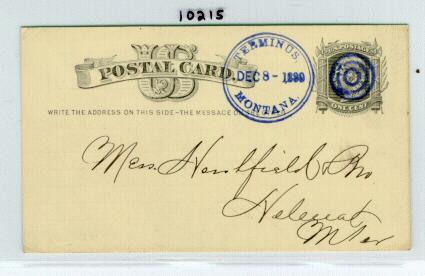 10215
US
POSTAL CARD.
TERMINUS,
DEC 8 - 1880
MONTANA.
U.S. POSTAGE
ONE CENT
WRITE THE ADDRESS ON THIS SIDE—THE MESSAGE O
Mess. Hershfield Bro
Helena
M Ter